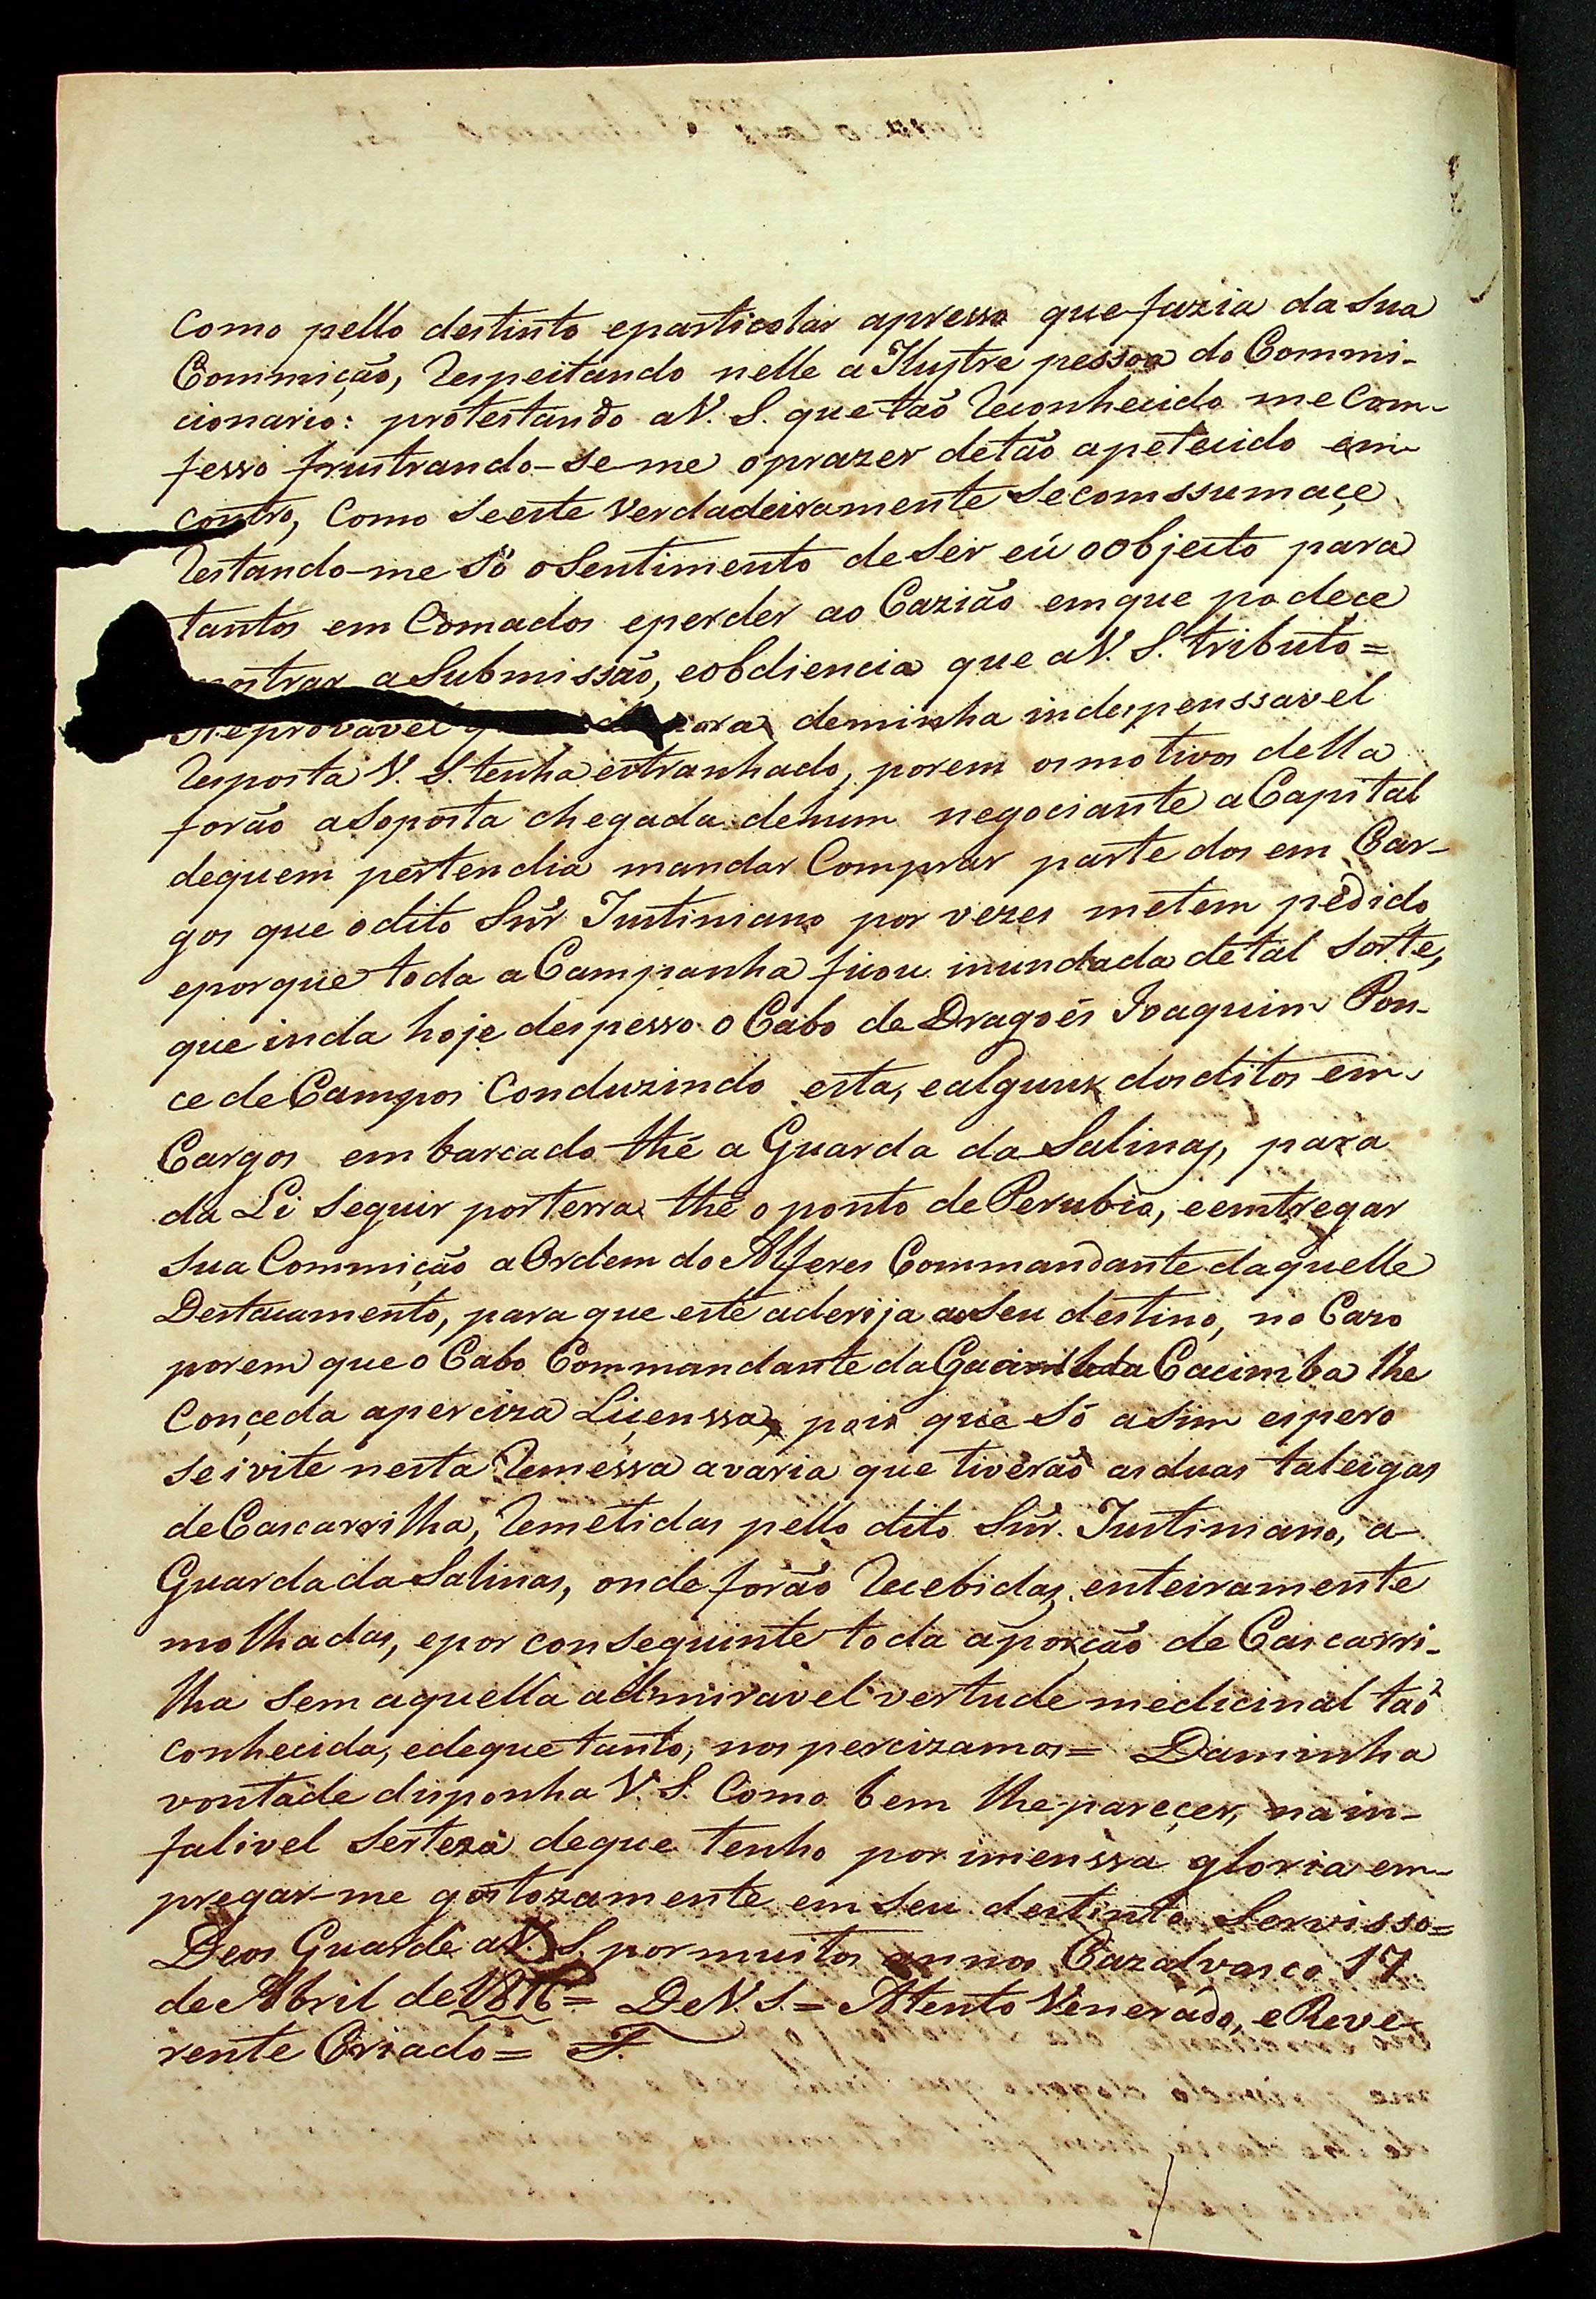 Como pello destinto eparticolar apresso que fazia da Sua
Commição, Respeitando nelle a Ilustre pessoa do Commi-
cionario: protestando aV. S. que tão Reconhecido me Com-
fesso frustrando-se-me oprazer detão apetecido em-
contro, Como Seeste Verdadeiramente Secomssumaçe
Restando-me Só oSentimento deSer eú oobjecto para
tantos em Comados eperder ao Cazião emque podece
mostrar aSubmissão, eobdiencia que aV. S. tributo=
Heprovavel demora deminha indespenssavel
Resposta V. S. tenha extranhado, porem osmotivos della
forão aSoposta chegada dehum negociante aCapital
dequem pertendia mandar Comprar parte dos em Car-
gos que odito Snr̃ Iustiniano por vezes metem pedido
eporque toda aCampanha ficou inundada detal Sorte,
que inda hoje despesso o Cabo de Dragoés Ioaquim Pon-
ce deCampos Conduzindo esta, ealguns dosditos em-
Cargos embarcado thé a Guarda da Salinas, para
da Li Seguir porterra thé o ponto de Perubio, eemtregar
Sua Commição aOrdem do Alferes Commandante daquelle
Destacamento, para que este aderija aoSeu destino, no Cazo
porem que o Cabo Commandante da Cacimba lhe
Conçeda aperciza Liçenssa, pois que Só aSim espero
Seivite nesta Remessa avaria que tiverão asduas taleigas
deCascarrilha, Remetidas pello dito Snr̃. Iustiniano, a
Guarda da Salinas, onde forão Recebidas enteiramente
molhadas, epor conseguinte toda aporção de Cascarri-
lha Sem aquella admiravel vertude medicinal tão
conhecida, edeque tanto, nos percizamos= Daminha
vontade disponha V. S. Como bem lhepareçer, na in-
falivel Serteza deque tenho por imenssa gloria em-
pregar-me gostozamente em Seu destinto Servisso=
Deos Guarde aV. S. pormuitos annos Cazalvasco 17
de Abril de 1816= DeV. S.= Atento Venerado, e Reve-
rente Criado= F.